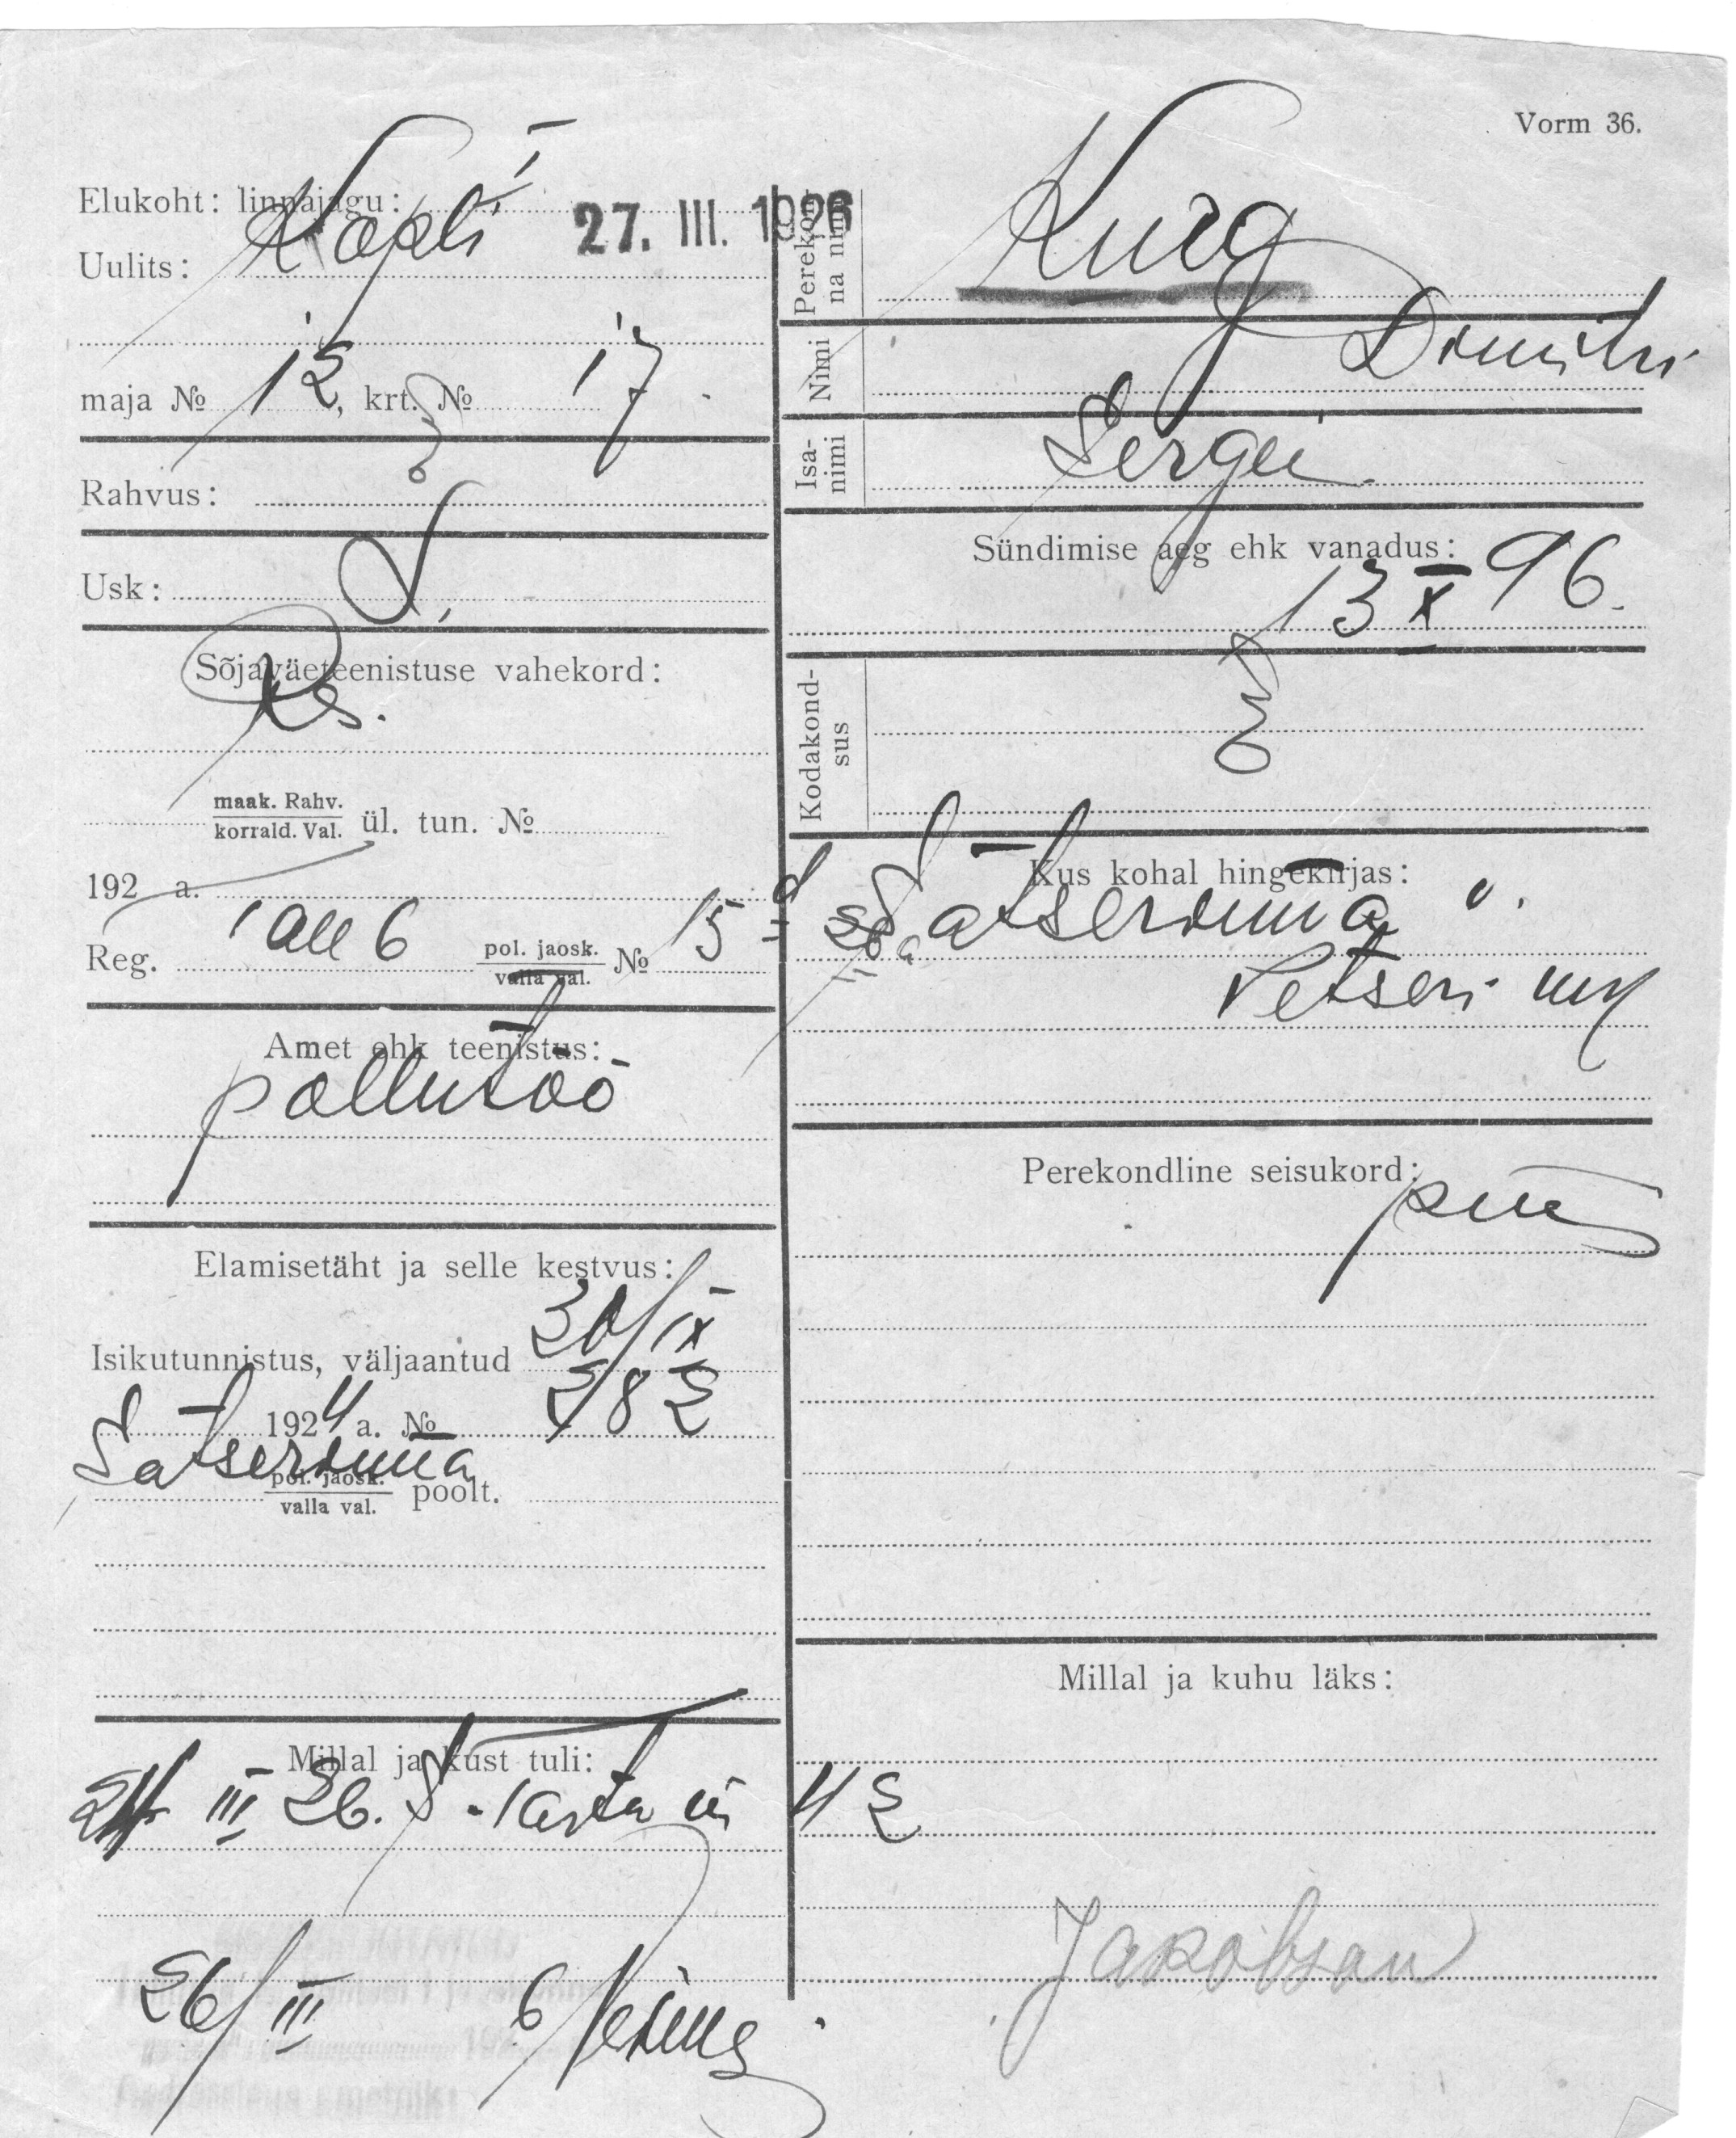 Vorm 36.
Elukoht: linnajagu: I
27. III. 1926
Uulits: Kopli
maja № 12, krt. № 17
Rahvus:
Usk:
Sõjaväeteenistuse vahekord:
Rs.
maak. Rahv.
korrald. Val. ül. tun. №
192 a.
Reg. Tall 6 pol. jaosk. № 15
valla val.
Amet ehk teenistus:
põllutöö
Elamisetäht ja selle kestvus:
Isikutunnistus, väljaantud 30/IX
1924 a. № 282
Satserinna
pol. jaosk.
valla val. poolt.
Millal ja kust tuli:
24 III 26. S. Tartu m 42
26/III 6/
Perekonna nimi Kurg
Nimi Dimitri
Isanimi Sergei
Sündimise aeg ehk vanadus:
13 X 96.
Kodakondsus
Kus kohal hingekirjas:
Satserinna v.
Petseri mk
Perekondline seisukord:
Millal ja kuhu läks:
Jakobson